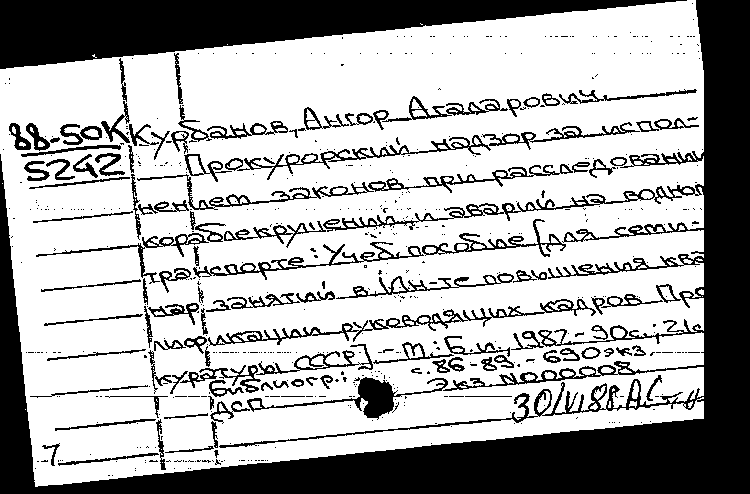 88-50К Курбанов, Ангор Агаларович.
5242 Прокурорский надзор за испол-
нением законов при расследовании
кораблекрушений и аварий на водном
транспорте: Учеб. пособие [для семи-
нар. занятий в Ин-те повышения ква
лификации руководящих кадров Про
куратуры СССР]. - М.: Б. и., 1987. - 90с.; 21с
Библиогр.: с. 86-89. - 690 экз.
ДСП. Экз. N000008.
30/VI88.
7